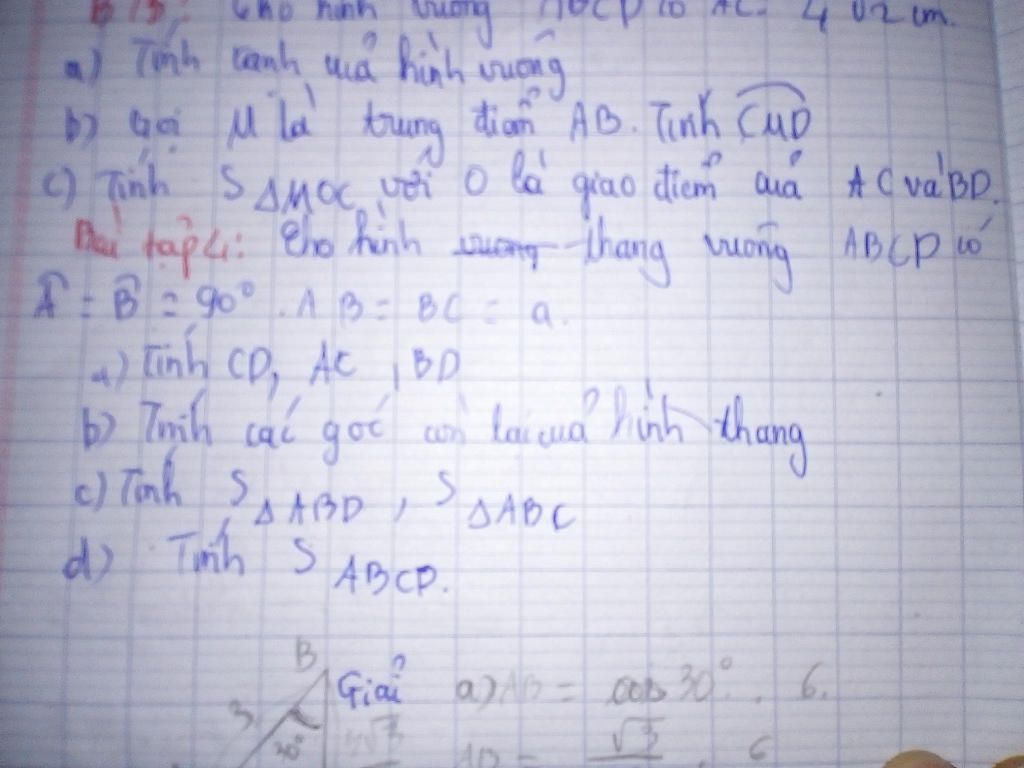 B/3: Cho hình vuông ABCD có AC = 4√2 cm.
a) Tính cạnh của hình vuông
b) Gọi M là trung điểm AB. Tính CMD
c) Tính S ΔMOC với O là giao điểm của AC và BD.
Bài tập 4: Cho hình vuông thang vuông ABCD có
Â = B̂ = 90°. AB = BC = a.
a) Tính CD, AC, BD
b) Tính các góc còn lại của hình thang
c) Tính S ΔABD, S ΔABC
d) Tính S ABCD.
B
Giải a) AB = cos 30°. 6.
3
30°
AB = √3 . 6